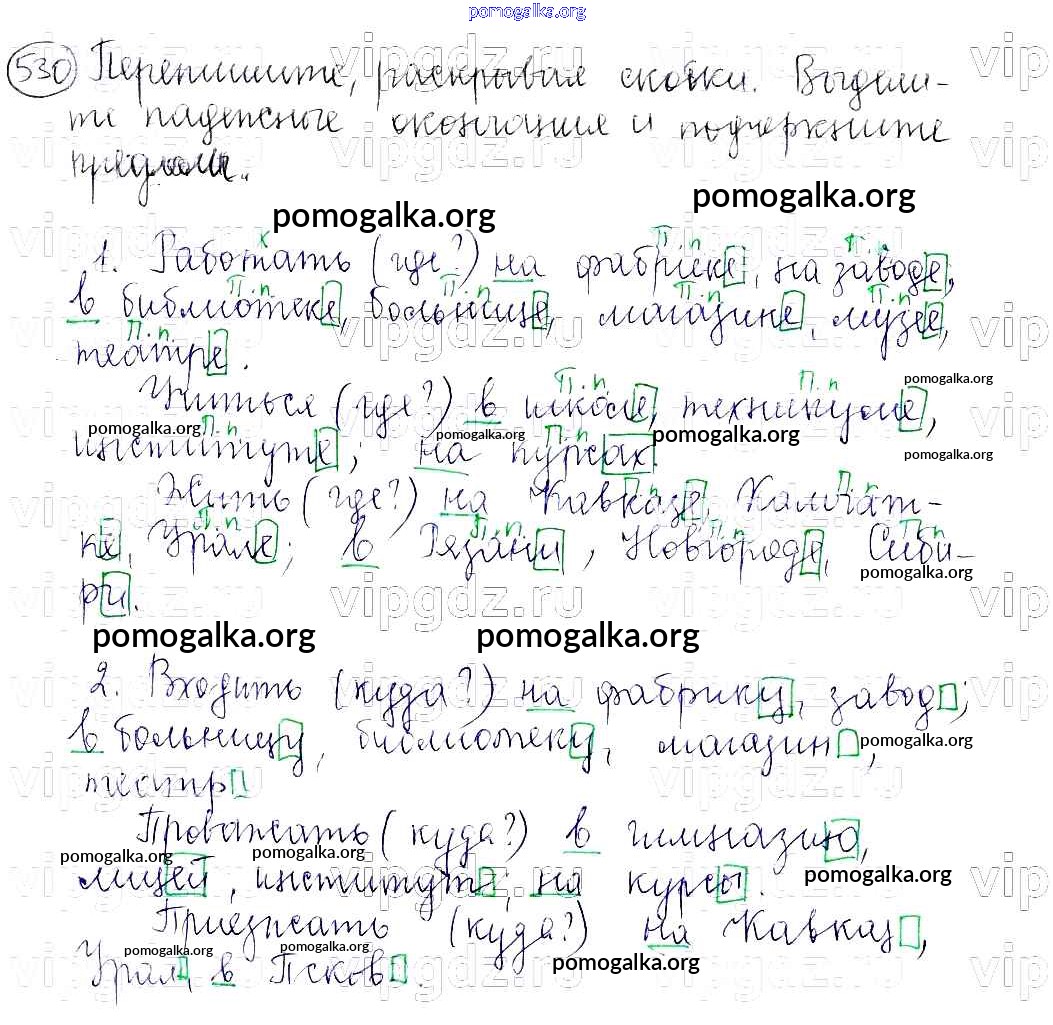 pomogalka.org
530 Перепишите, раскрывая скобки. Выдели-
те падежные окончания и подчеркните
предлоги.
pomogalka.org pomogalka.org
1. Работать (где?) на фабрике, на заводе,
в библиотеке, больнице, магазине, музее,
театре.
Учиться (где?) в школе, техникуме,
институте; на курсах.
Жить (где?) на Кавказе, Камчат-
ке, Урале; в Рязани, Новгороде, Сиби-
ри.
pomogalka.org pomogalka.org
2. Входить (куда?) на фабрику, завод;
в больницу, библиотеку, магазин,
театр
Провожать (куда?) в гимназию,
лицей, институт; на курсы.
Приезжать (куда?) на Кавказ,
Урал, в Псков.
pomogalka.org